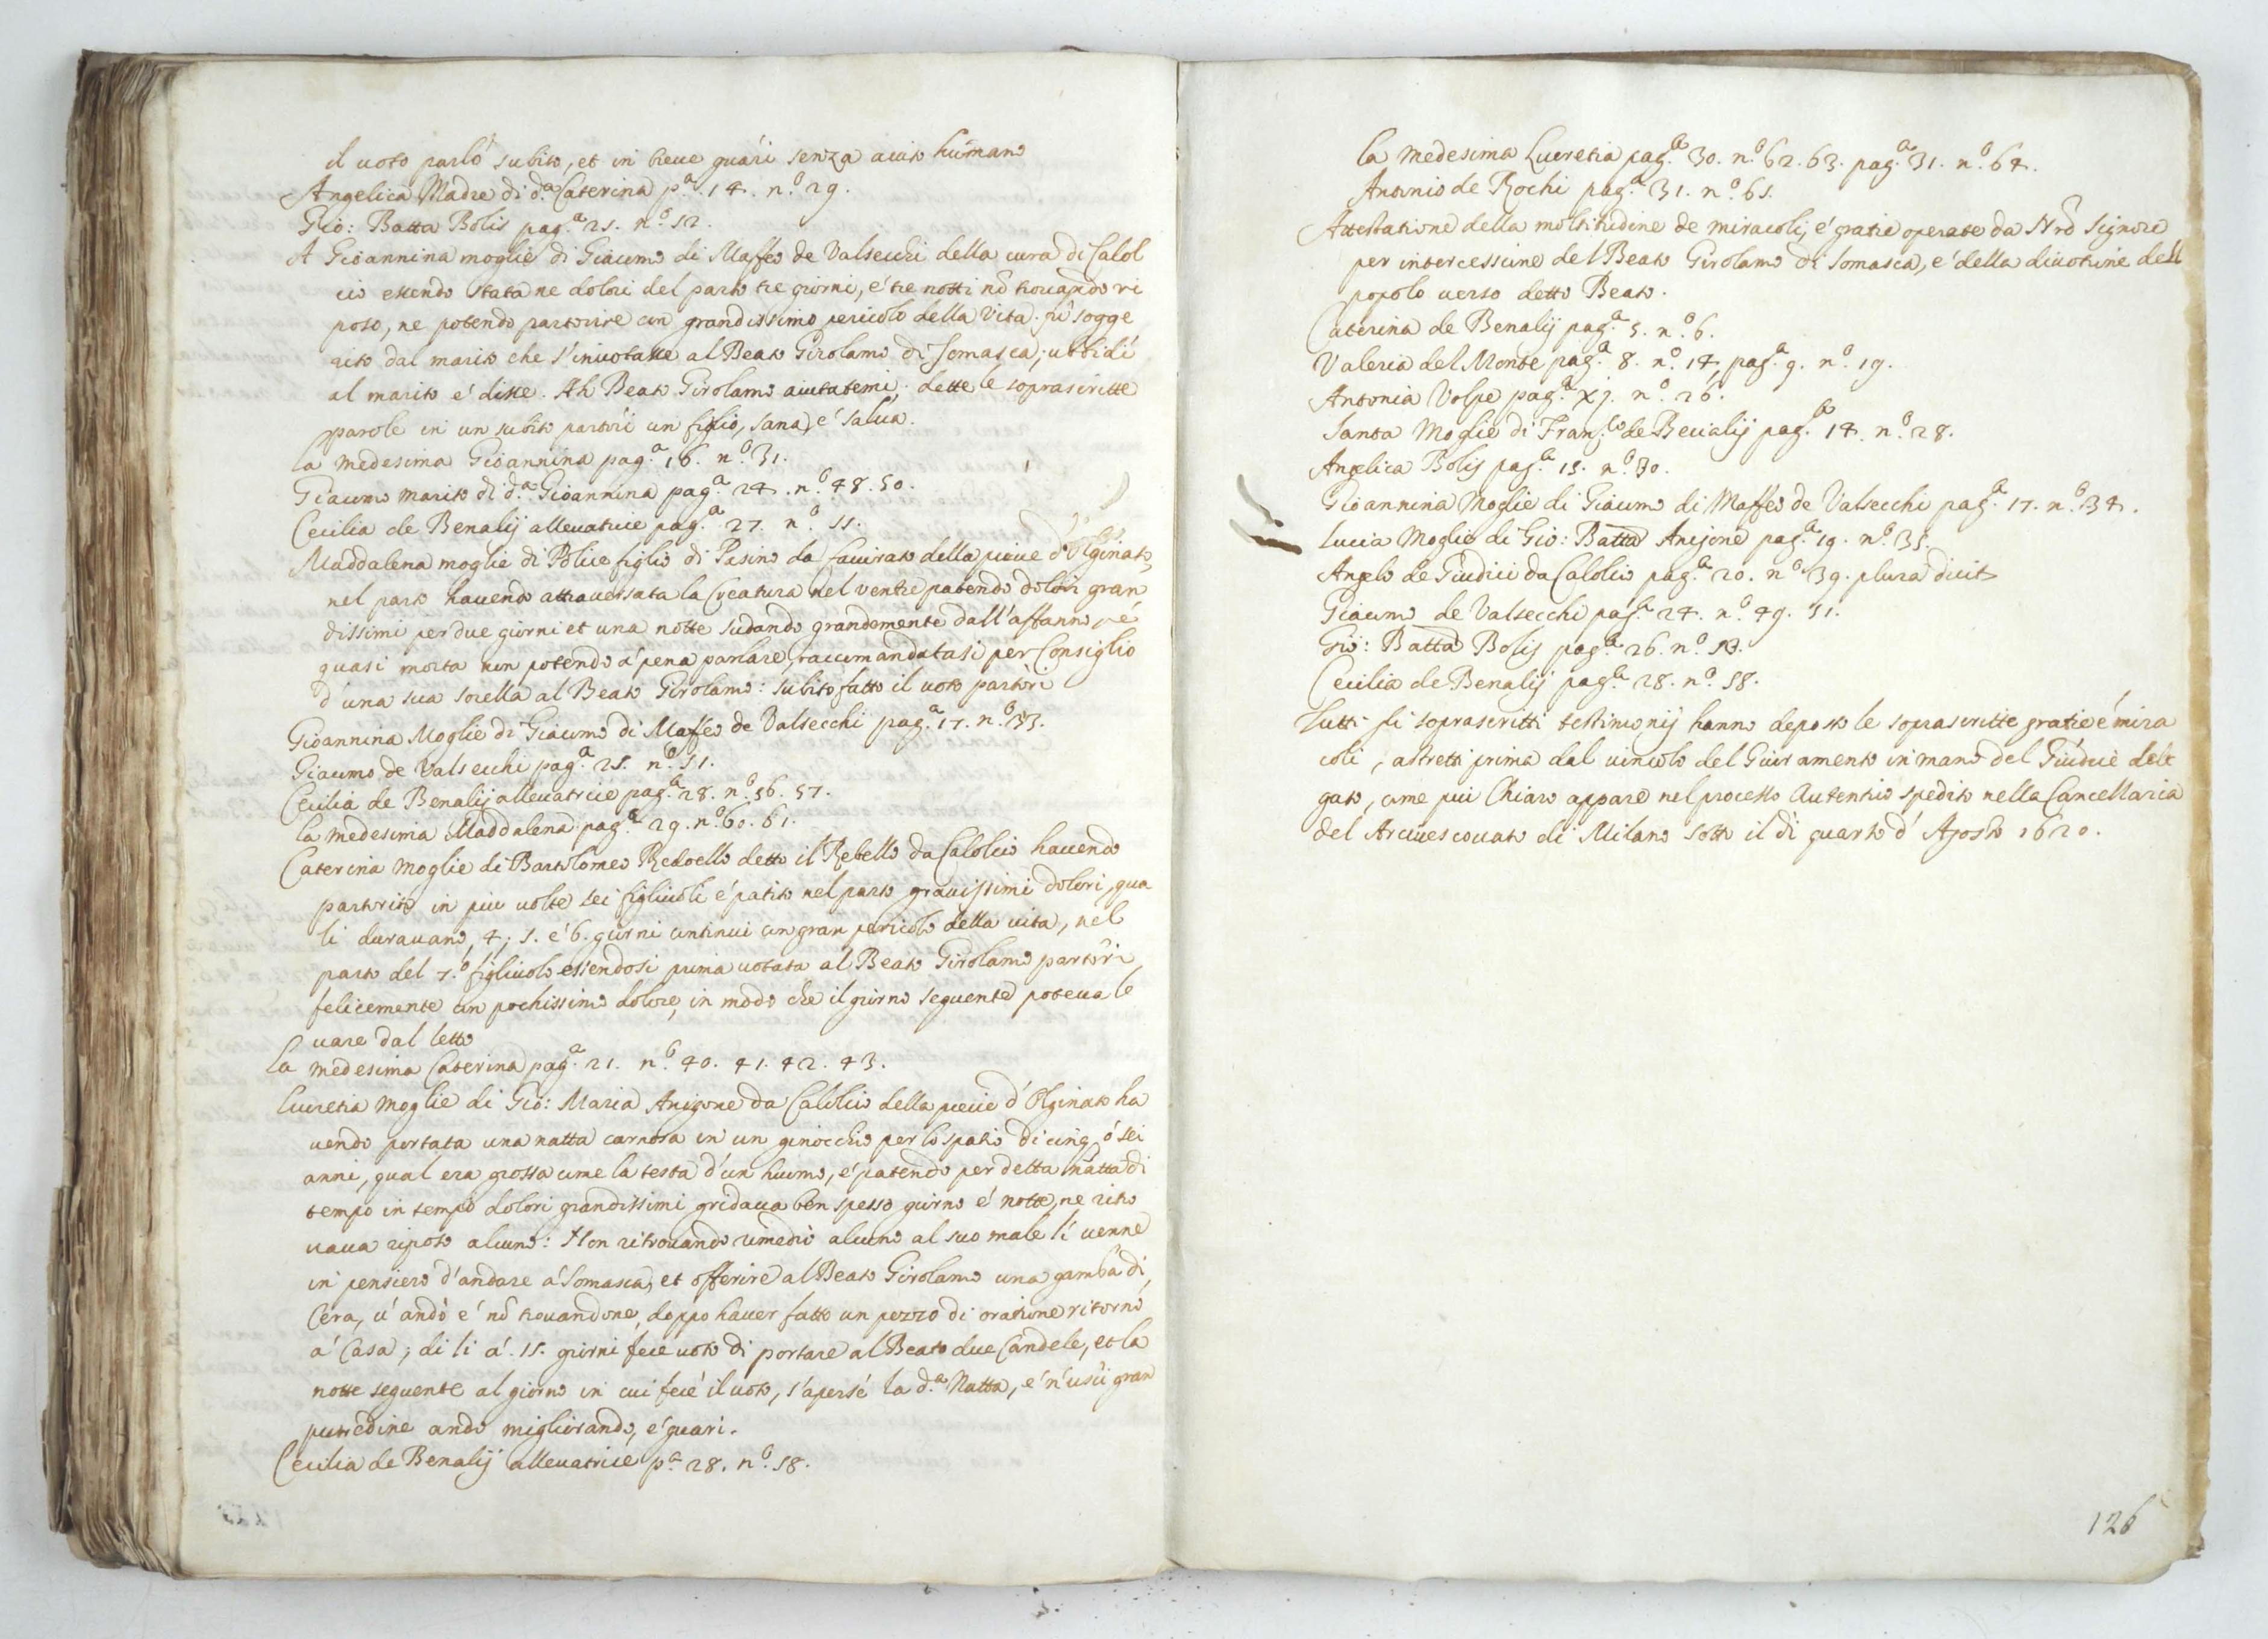 il uoto parlò subito, et in breue guarì senza aiuto humano
Angelica Madre di d.a Caterina p.a 14. n.o 29.
Gio: Batta Bolis pag.a 25. n.o 52.
A Gioannina moglie di Giacomo di Maffeo de Valsecchi della cura di Calol
cio essendo stata ne dolori del parto tre giorni, é tre notti nō trouando ri
poso, ne potendo partorire con grandissimo pericolo della Vita. fù sogge
rito dal marito che s'inuotasse al Beato Girolamo di Somasca; ubbidì
al marito é disse. Ah Beato Girolamo aiutatemi; dette le soprascritte
parole in un subito partorì un figlio, sana, é salua.
la medesima Gioannina pag.a 16. n.o 31.
Giacomo marito di d.a Gioannina pag.a 24. n.o 48. 50.
Cecilia de Benalij alleuatrice pag.a 27. n.o 55.
Maddalena moglie di Police figlio di Pasino da Cauirato della pieue d'Olginato,
nel parto hauendo attrauersata la Creatura nel ventre patendo dolori gran
dissimi per due giorni et una notte sudando grandemente dall'affanno, é
quasi morta non potendo à pena parlare, raccomandatasi per Consiglio
d'una sua sorella al Beato Girolamo: subito fatto il uoto partorì
Gioannina Moglie di Giacomo di Maffeo de Valsecchi pag.a 17. n.o 33.
Giacomo de Valsecchi pag.a 25. n.o 51.
Cecilia de Benalij alleuatrice pag.a 28. n.o 56. 57.
la medesima Maddalena pag.a 29. n.o 60. 61.
Caterina moglie di Bartolomeo Redoello detto il Rebello da Calolcio hauendo
partorito in piu uolte sei figliuoli é patito nel parto grauissimi dolori, qua
li durauano, 4, 5. é 6. giorni continui con gran pericolo della uita, nel
parto del 7.o figliuolo essendosi prima uotata al Beato Girolamo partorì
felicemente con pochissimo dolore, in modo che il giorno seguente poteua le
uare dal letto
La medesima Caterina pag.a 21. n.o 40. 41. 42. 43.
Lucretia moglie di Gio: Maria Anigone da Calolcio della pieue d'Olginato ha
uendo portata una natta carnosa in un ginocchio per lo spatio di cinq ó sei
anni, qual era grossa come la testa d'un huomo, é patendo per detta natta di
tempo in tempo dolori grandissimi gridaua ben spesso giorno é notte, ne ritro
uaua riposo alcuno: Non ritrouando rimedio alcuno al suo male li uenne
in pensiero d'andare á Somasca, et offerire al Beato Girolamo una gamba di
Cera, u'andò é nō trouandone, doppo hauer fatto un pezzo di oratione ritornò
á Casa; di lì á 15. giorni fece uoto di portare al Beato due Candele, et la
notte seguente al giorno in cui fece il uoto, s'aperse la d.a Natta, é n'uscì gran
putredine andò migliorando, é guarì.
Cecilia de Benalij alleuatrice p.a 28. n.o 58.
la medesima Lucretia pag.a 30. n.o 62. 63. pag.a 31. n.o 64.
Antonio de Rochi pag.a 31. n.o 65.
Attestatione della moltitudine de miracoli, é gratie operate da Nrō Signore
per intercessione del Beato Girolamo di Somasca, é della diuotione dell
popolo uerso detto Beato.
Caterina de Benalij pag.a 5. n.o 6.
Valeria del Monte pag.a 8. n.o 14, pag.a 9. n.o 19.
Antonia Volpe pag.a xj. n.o 26.
Santa Moglie di Fran.co de Benalij pag.a 14. n.o 28.
Angelica Bolis pag.a 15. n.o 30.
Gioannina Moglie di Giacomo di Maffeo de Valsecchi pag.a 17. n.o 34.
Lucia Moglie di Gio: Batta Anigone pag.a 19. n.o 35.
Angelo de Giudici da Calolcio pag.a 20. n.o 39. plura dicit
Giacomo de Valsecchi pag.a 24. n.o 49. 51.
Gio: Batta Bolis pag.a 26. n.o 53.
Cecilia de Benalij pag.a 28. n.o 58.
Tutti li soprascritti testimonij hanno deposto le soprascritte gratie é mira
coli, astretti prima dal uincolo del Giuramento in mano del Giudice dele
gato, come piu Chiaro appare nel processo Autentico spedito nella Cancellaria
del Arciuescouato di Milano sotto il dì quarto d'Agosto 1620.
126